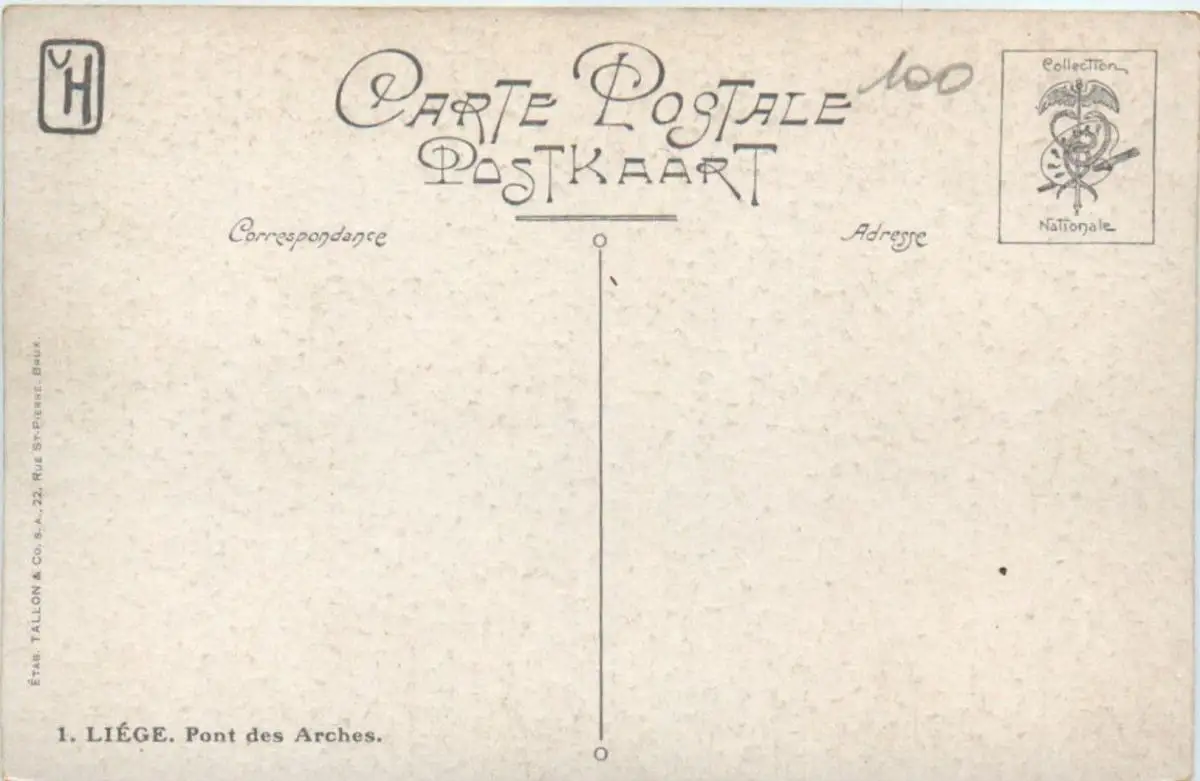 VH
CARTE POSTALE
100
POSTKAART
Correspondance
Adresse
Collection
Nationale
ÉTAB. TALLON & CO. S.A., 22, RUE ST-PIERRE. BRUX.
1. LIÉGE. Pont des Arches.